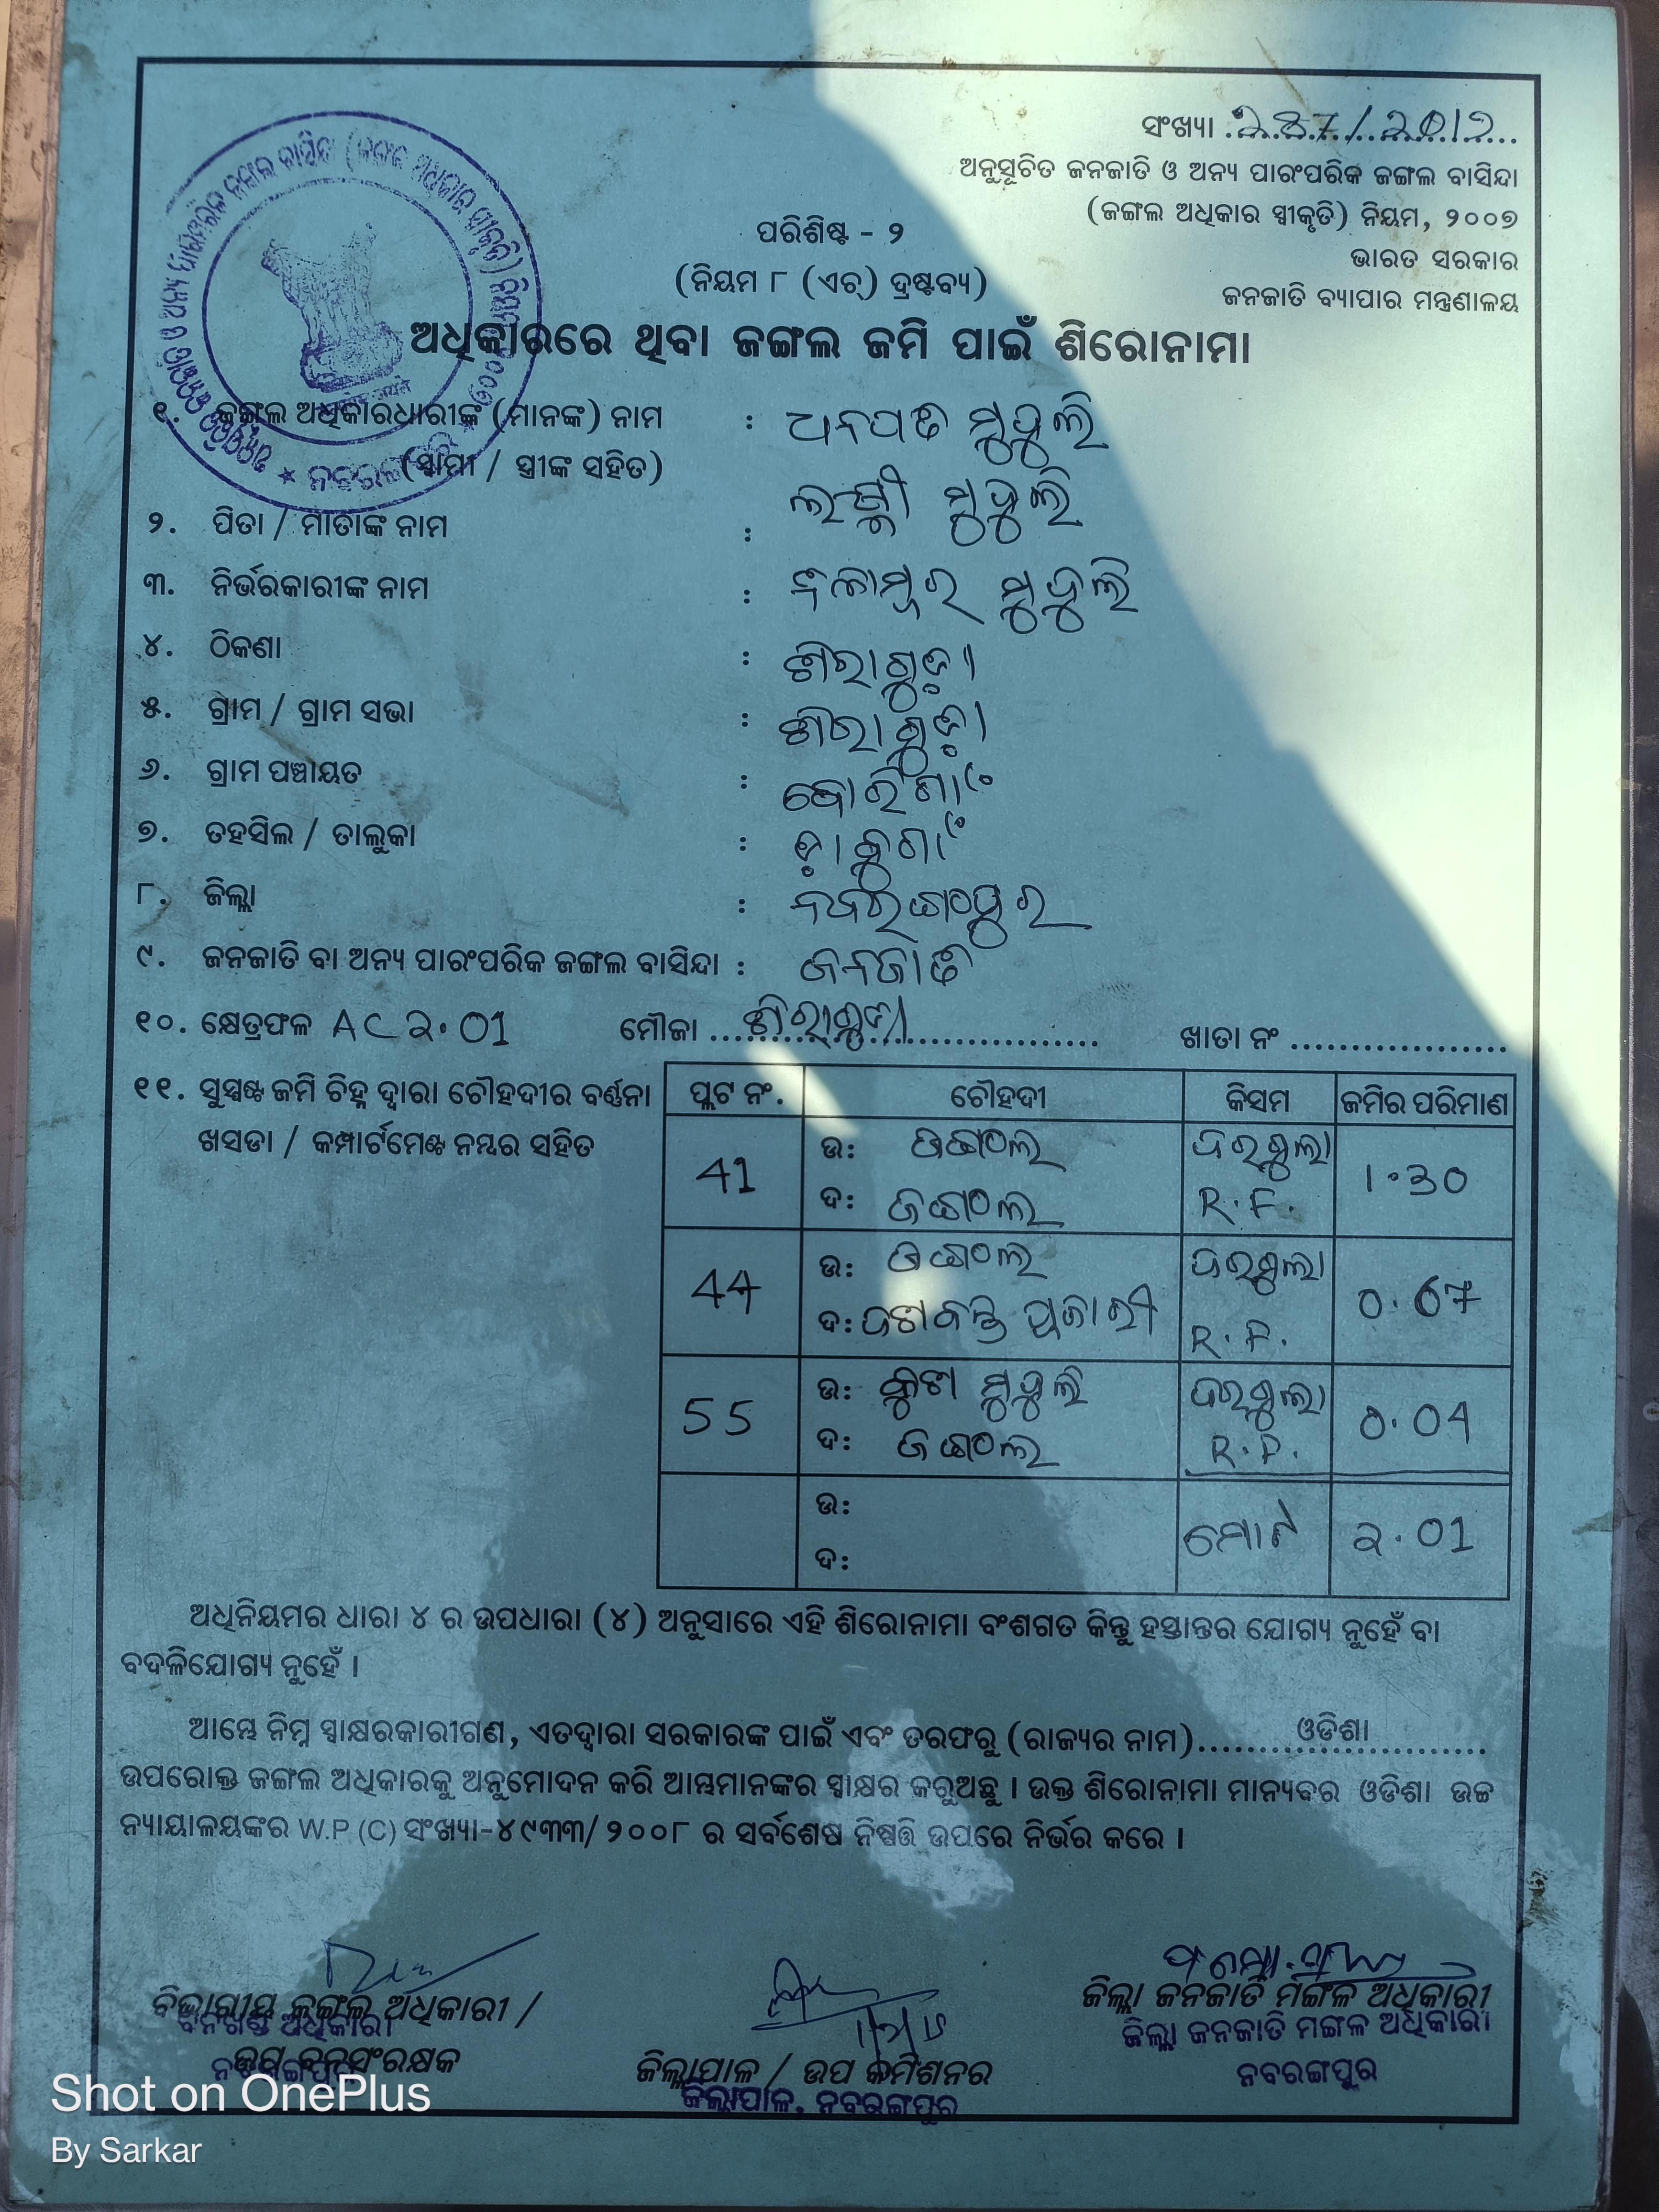 ସଂଖ୍ୟା
ଅନୁସୂଚିତ ଜନଜାତି ଓ ଅନ୍ୟ ପାରଂପରିକ ଜଙ୍ଗଲ ବାସିନ୍ଦା
(ଜଙ୍ଗଲ ଅଧିକାର ସ୍ୱୀକୃତି) ନିୟମ, ୨୦୦୭
ଭାରତ ସରକାର
ଜନଜାତି ବ୍ୟାପାର ମନ୍ତ୍ରଣାଳୟ
ପରିଶିଷ୍ଟ - ୨
(ନିୟମ ୮ (ଏଚ୍) ଦ୍ରଷ୍ଟବ୍ୟ)
ଅଧିକାରରେ ଥିବା ଜଙ୍ଗଲ ଜମି ପାଇଁ ଶିରୋନାମା
୧. ଜଙ୍ଗଲ ଅଧିକାରଧାରୀଙ୍କ (ମାନଙ୍କ) ନାମ : ଧନପତି ମୁଦୁଲି
(ସ୍ୱାମୀ / ସ୍ତ୍ରୀଙ୍କ ସହିତ) ଲକ୍ଷ୍ମୀ ମୁଦୁଲି
୨. ପିତା / ମାତାଙ୍କ ନାମ :
୩. ନିର୍ଭରକାରୀଙ୍କ ନାମ : ମୁଦୁଲି
୪. ଠିକଣା : ଶିରାଗୁଡ଼ା
୫. ଗ୍ରାମ / ଗ୍ରାମ ସଭା : ଶିରାଗୁଡ଼ା
୬. ଗ୍ରାମ ପଞ୍ଚାୟତ :
୭. ତହସିଲ / ତାଲୁକା : ଡ଼ାବୁଗାଁ
୮. ଜିଲ୍ଲା : ନବରଙ୍ଗପୁର
୯. ଜନଜାତି ବା ଅନ୍ୟ ପାରଂପରିକ ଜଙ୍ଗଲ ବାସିନ୍ଦା : ଜନଜାତି
୧୦. କ୍ଷେତ୍ରଫଳ AC ୨.01 ମୌଜା ଶିରାଗୁଡା ଖାତା ନଂ
୧୧. ସୁସ୍ପଷ୍ଟ ଜମି ଚିହ୍ନ ଦ୍ୱାରା ଚୌହଦୀର ବର୍ଣ୍ଣନା
ଖସଡା / କମ୍ପାର୍ଟମେଣ୍ଟ ନମ୍ବର ସହିତ
ପ୍ଲଟ ନଂ. ଚୌହଦୀ କିସମ ଜମିର ପରିମାଣ
41 ଉ: ଜଙ୍ଗଲ 1.30
ଦ: ଜଙ୍ଗଲ R.F.
44 ଉ: ଜଙ୍ଗଲ 0.67
ଦ: ପୂଜାରୀ R.F.
55 ଉ: ମୁଦୁଲି 0.04
ଦ: ଜଙ୍ଗଲ R.F.
ଉ: ମୋଟ ୨.01
ଦ:
ଅଧିନିୟମର ଧାରା ୪ ର ଉପଧାରା (୪) ଅନୁସାରେ ଏହି ଶିରୋନାମା ବଂଶଗତ କିନ୍ତୁ ହସ୍ତାନ୍ତର ଯୋଗ୍ୟ ନୁହେଁ ବା
ବଦଳିଯୋଗ୍ୟ ନୁହେଁ ।
ଆମ୍ଭେ ନିମ୍ନ ସ୍ୱାକ୍ଷରକାରୀଗଣ, ଏତଦ୍ୱାରା ସରକାରଙ୍କ ପାଇଁ ଏବଂ ତରଫରୁ (ରାଜ୍ୟର ନାମ)......ଓଡିଶା......
ଉପରୋକ୍ତ ଜଙ୍ଗଲ ଅଧିକାରକୁ ଅନୁମୋଦନ କରି ଆମ୍ଭମାନଙ୍କର ସ୍ୱାକ୍ଷର କରୁଅଛୁ । ଉକ୍ତ ଶିରୋନାମା ମାନ୍ୟବର ଓଡିଶା ଉଚ୍ଚ
ନ୍ୟାୟାଳୟଙ୍କର W.P (C) ସଂଖ୍ୟା-୪୯୩୩/୨୦୦୮ ର ସର୍ବଶେଷ ନିଷ୍ପତ୍ତି ଉପରେ ନିର୍ଭର କରେ ।
ବିଭାଗୀୟ ଜଙ୍ଗଲ ଅଧିକାରୀ /
ବନଖଣ୍ଡ ଅଧିକାରୀ
ଉପ ବନସଂରକ୍ଷକ
ନବରଙ୍ଗପୁର
ଜିଲ୍ଲାପାଳ / ଉପ କମିଶନର
ଜିଲ୍ଲାପାଳ, ନବରଙ୍ଗପୁର
ଜିଲ୍ଲା ଜନଜାତି ମଙ୍ଗଳ ଅଧିକାରୀ
ଜିଲ୍ଲା ଜନଜାତି ମଙ୍ଗଳ ଅଧିକାରୀ
ନବରଙ୍ଗପୁର
Shot on OnePlus
By Sarkar